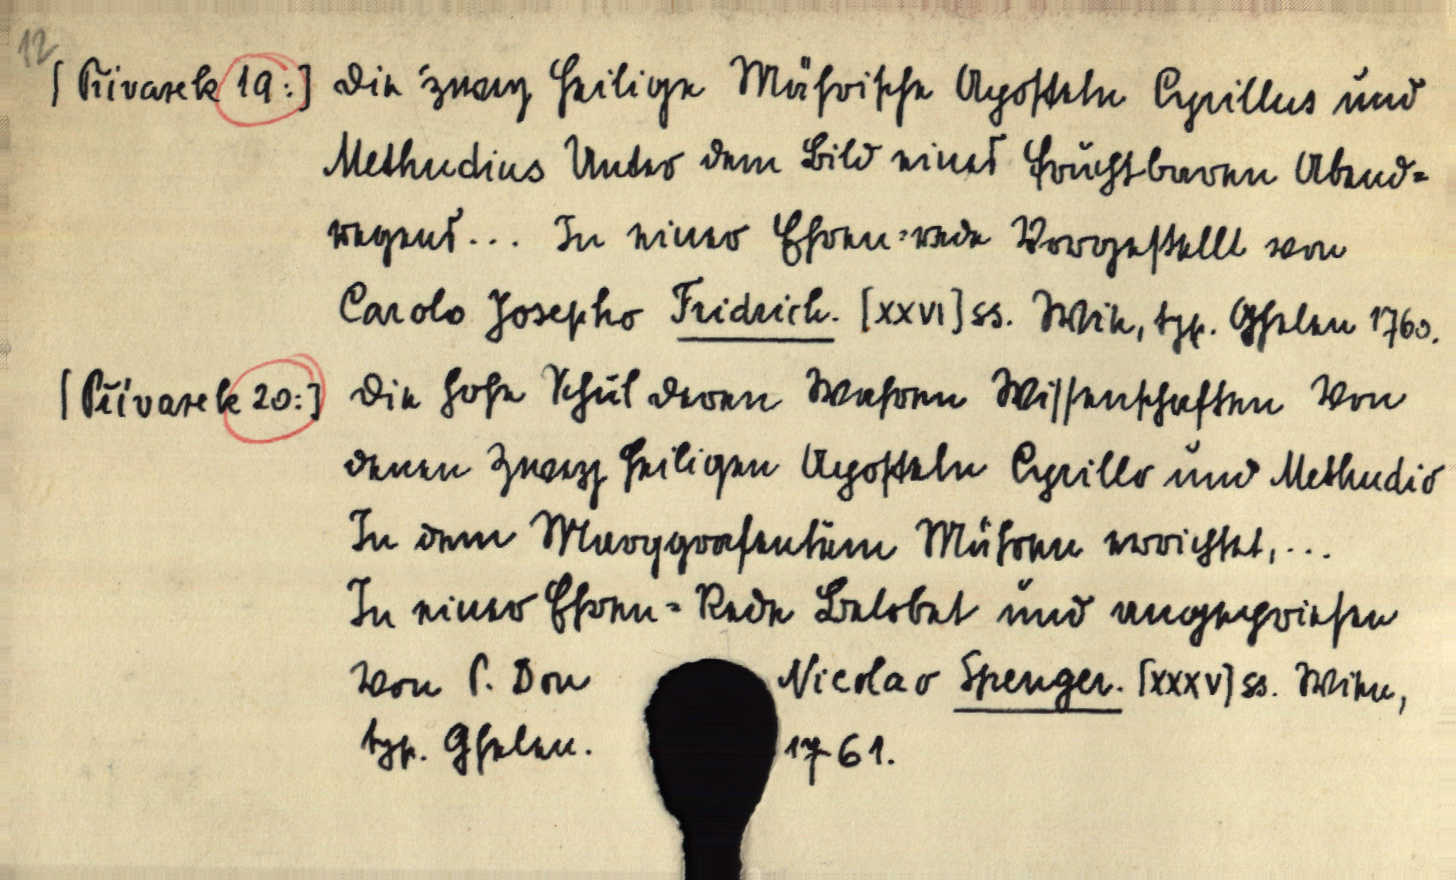 12
[Přívazek 19:] Die zwey heilige Mährische Aposteln Cyrillus und
Methudius Unter dem Bild eines fruchtbaren Abend=
regens... In einer Ehren=rede Vorgestellt von
Carolo Josepho Fridrich. [XXVI] ss. Wien, typ. Ghelen 1760.
[Přívazek 20:] Die hohe Schul deren Wahren Wissenschaften Von
denen Zweyy heiligen Aposteln Cyrillo und Methudio
In dem Marggrafentum Mähren errichtet,...
In einer Ehren=Rede Belobet und angepriesen
Von P. Don Nicolao Spenger. [XXXV] ss. Wien,
typ. Ghelen. 1761.